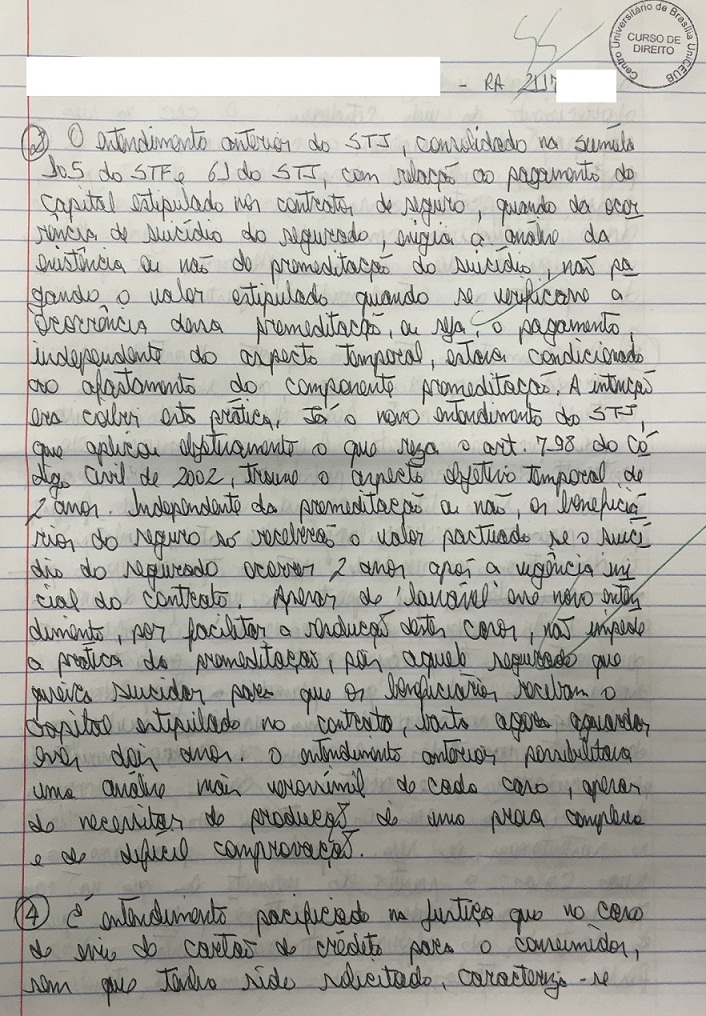 Centro Universitário de Brasília UniCEUB
CURSO DE
DIREITO
- RA 2117
3) O entendimento anterior do STJ, consolidado na sumula
105 do STF e 61 do STJ, com relação ao pagamento do
capital estipulado nos contratos de seguro, quando da ocor
rência de suicídio do segurado, exigia a análise da
existência ou não de premeditação do suicídio, não pa
gando o valor estipulado quando se verificasse a
ocorrência dessa premeditação, ou seja, o pagamento,
independente do aspecto temporal, estava condicionado
ao afastamento do componente premeditação. A intenção
era coibir esta prática. Já o novo entendimento do STJ,
que aplicou objetivamente o que reza o art. 798 do Có
digo Civil de 2002, trouxe o aspecto objetivo temporal de
2 anos. Independente da premeditação ou não, os beneficiá
rios do seguro só receberão o valor pactuado se o suicí
dio do segurado ocorrer 2 anos após a vigência ini
cial do contrato. Apesar de "louvável" esse novo enten
dimento, por facilitar a resolução destes casos, não impede
a prática da premeditação, pois aquele segurado que
queira suicidar, para que os beneficiários recebam o
capital estipulado no contrato, basta agora aguardar
esses dois anos. O entendimento anterior possibilitava
uma análise mais verossímil de cada caso, apesar
de necessitar de produção de uma prova complexa
e de difícil comprovação.
4) É entendimento pacificado na Justiça que no caso
de envio de cartão de crédito para o consumidor,
sem que tenha sido solicitado, caracteriza-se